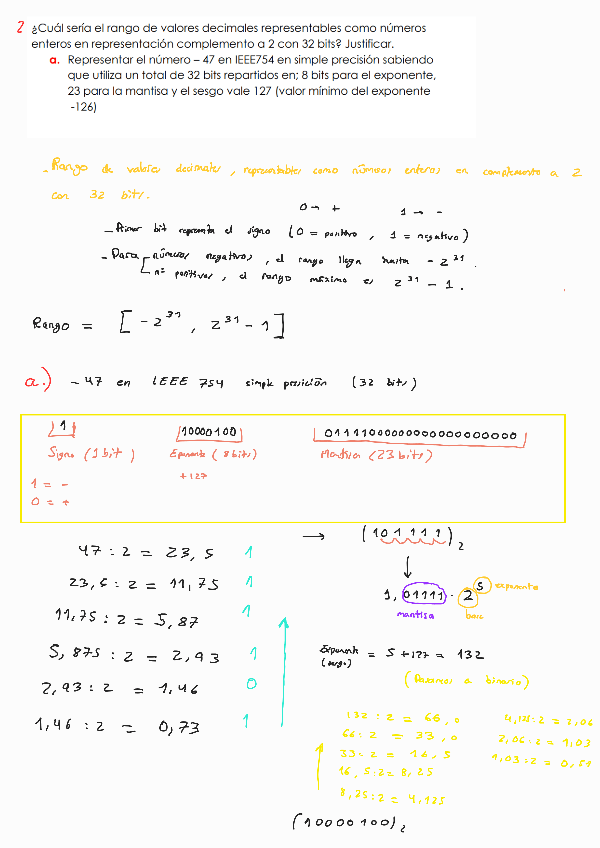 2 ¿Cuál sería el rango de valores decimales representables como números
enteros en representación complemento a 2 con 32 bits? Justificar.
a. Representar el número – 47 en IEEE754 en simple precisión sabiendo
que utiliza un total de 32 bits repartidos en; 8 bits para el exponente,
23 para la mantisa y el sesgo vale 127 (valor mínimo del exponente
-126)
- Rango de valores decimales, representables como números enteros en complemento a 2
con 32 bits.
0 → + 1 → -
- Primer bit representa el signo (0 = positivo, 1 = negativo)
- Para números negativos, el rango llega hasta - 2^31.
nº positivos, el rango máximo es 2^31 - 1.
Rango = [-2^31, 2^31 - 1]
a.) - 47 en IEEE 754 simple precisión (32 bits)
1 10000100 01111000000000000000000
Signo (1 bit) Exponente (8 bits) Mantisa (23 bits)
+127
1 = -
0 = +
47 : 2 = 23,5 1 → (101111)₂
23,5 : 2 = 11,75 1
1,01111 · 2^5 exponente
mantisa base
11,75 : 2 = 5,87 1
5,875 : 2 = 2,93 1
Exponente = 5 + 127 = 132
(sesgo)
2,93 : 2 = 1,46 0
(Pasamos a binario)
1,46 : 2 = 0,73 1
132 : 2 = 66,0 4,125 : 2 = 2,06
66 : 2 = 33,0 2,06 : 2 = 1,03
33 : 2 = 16,5 1,03 : 2 = 0,51
16,5 : 2 = 8,25
8,25 : 2 = 4,125
(10000100)₂